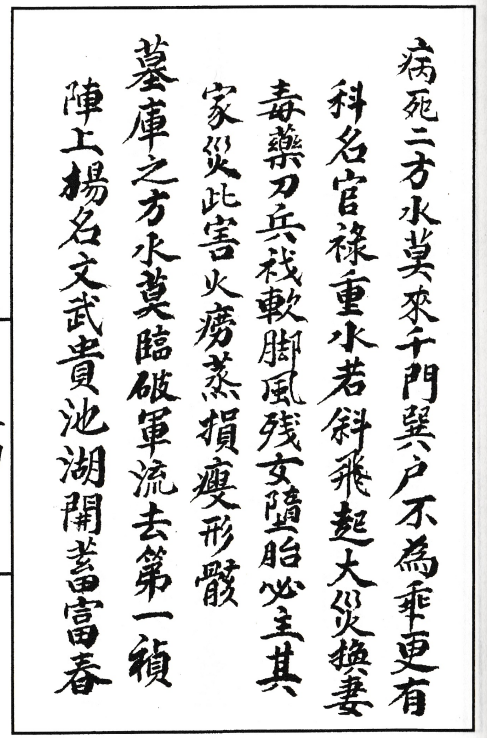 病死二方水莫來千門巽户不為乖更有
科名官祿重水若斜飛起大災換妻
毒藥刀兵戕軟脚風残女墮胎必主其
家災此害火癆蒸損瘦形骸
墓庫之方水莫臨破軍流去第一禎
陣上揚名文武貴池湖開蓄富春